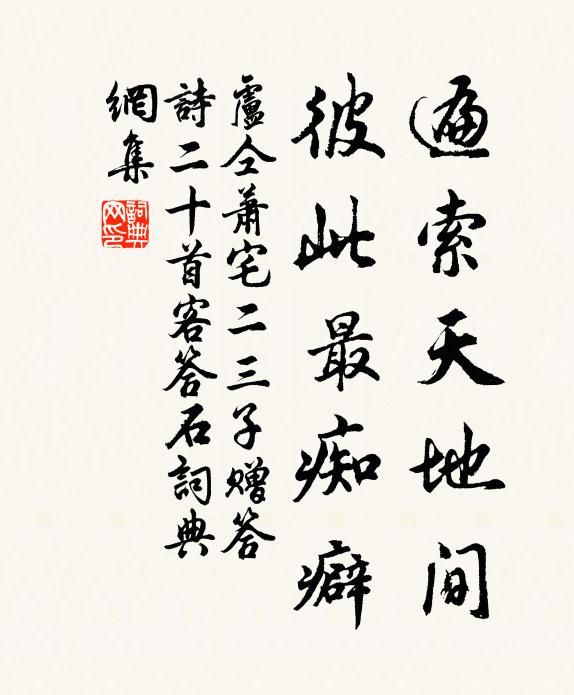 遍索天地间
彼此最痴癖
盧仝蕭宅二三子赠答
詩二十首客答石詞典
網集
詞典网印